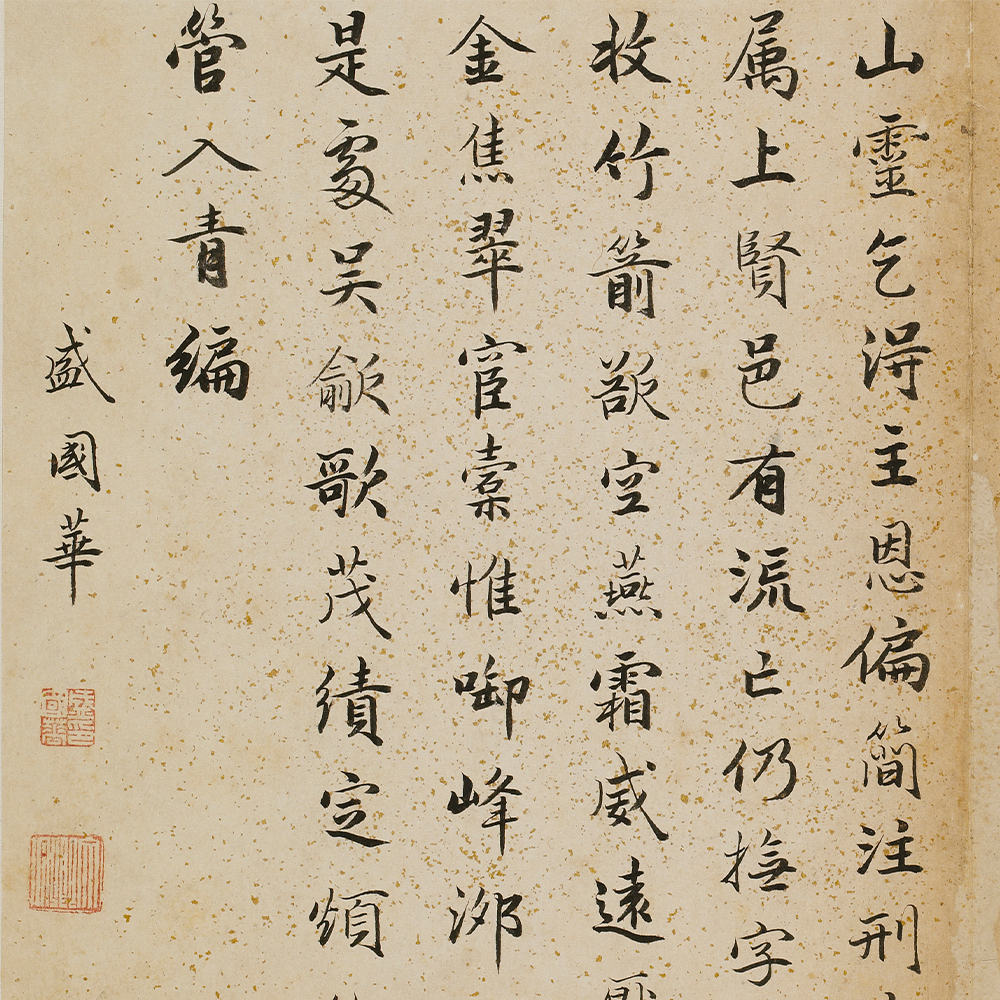 山靈乞得主恩偏簡注刑
属上賢邑有流亡仍撫字
牧竹箭欲空燕霜威遠
金焦翠宦橐惟啣峰泖
是處吴歈歌茂績定頒
管入青編
盛國華